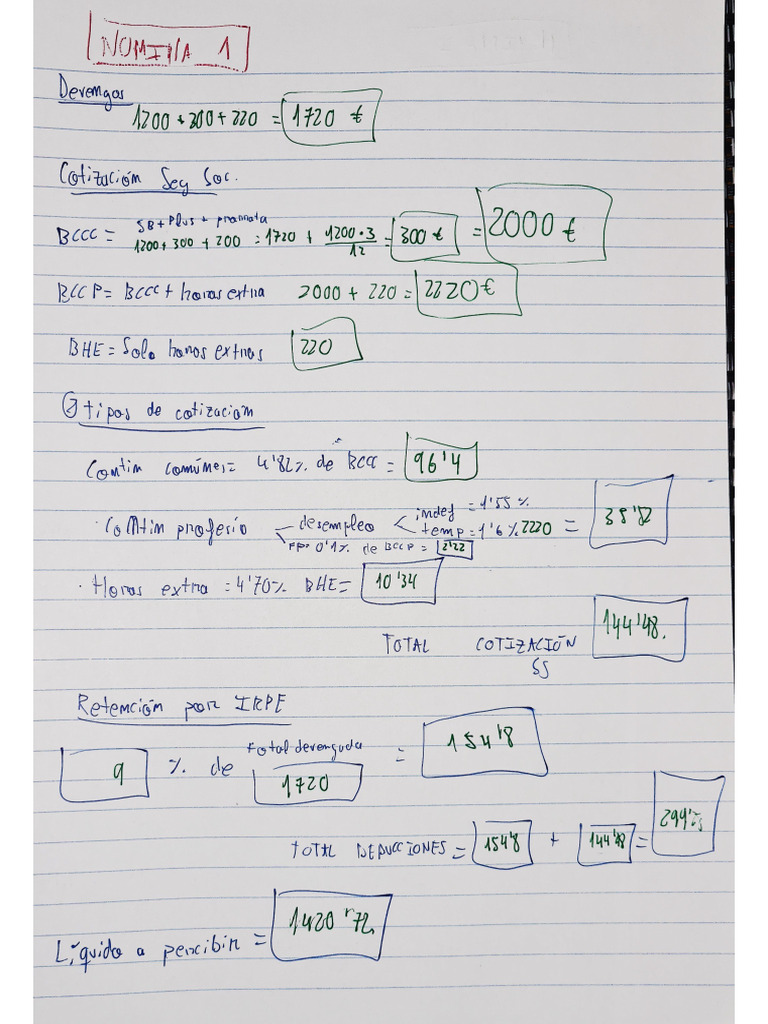 NOMINA 1
Devengos
1200 + 300 + 220 = 1720 €
Cotización Seg Soc.
BCCC = SB + Plus + prorrata
1200 + 300 + 200 = 1720 + 1200·3/12 = 300 € = 2000 €
BCCP = BCCC + horas extra 2000 + 220 = 2220 €
BHE = Solo horas extras 220
tipos de cotización
Contin comúnes = 4'82% de BCC = 96'4
· Contin profesio desempleo indef = 1'55 %
temp = 1'6 % 2220 =
FP = 0'1% de BCCP = 2'22
· Horas extra = 4'70% BHE = 10'34
144'48.
TOTAL COTIZACIÓN
SS
Retención por IRPF
9 % de total devengado 1720 = 154'8
TOTAL DEDUCCIONES = 154'8 + 144'48 =
Líquido a percibir = 1420'72